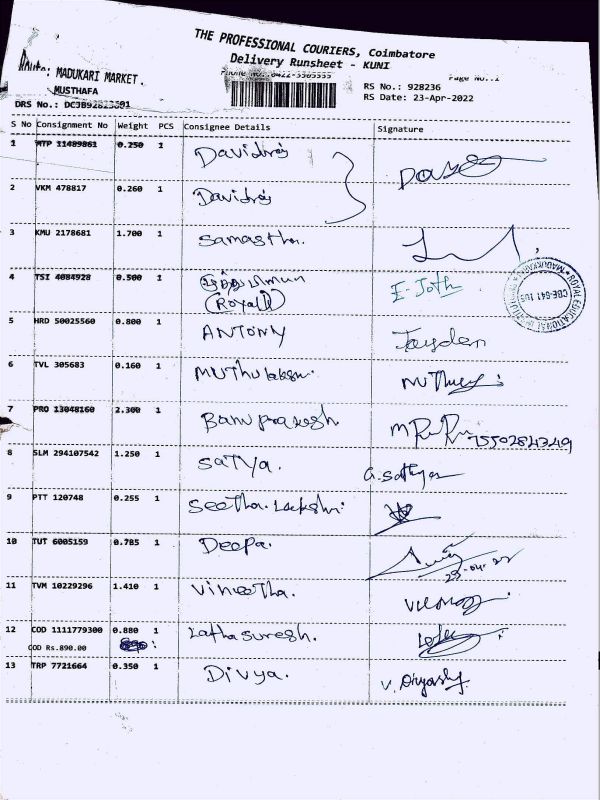 THE PROFESSIONAL COURIERS, Coimbatore
Delivery Runsheet - KUNI
Route: MADUKARI MARKET.
MUSTHAFA
Phone No.:0422-3505555
Page No.:1
RS No.: 928236
RS Date: 23-Apr-2022
DRS No.:
S No Consignment No Weight PCS Consignee Details Signature
1 MTP 11489861 0.250 1 Davidraj
2 VKM 478817 0.260 1 Davidraj
3 KMU 2178681 1.700 1 Samastha.
4 TSI 4084928 0.500 1 E Joth
(Royal)
ROYAL EDUCATIONAL
5 HRD 50025560 0.800 1 ANTONY Jayden
6 TVL 305683 0.160 1 Muthulakshmi.
7 PRO 13048160 2.300 1 Banuprakash 7550284349
8 SLM 294107542 1.250 1 Satya. G. Sathya
9 PTT 120748 0.255 1 Seetha. Lakshmi
10 TUT 6005159 0.785 1 Deepa.
23-04-22
11 TVM 10229296 1.410 1 Vineetha.
12 COD 1111779300 0.880 1 Latha Suresh.
COD Rs.890.00
13 TRP 7721664 0.350 1 Divya.